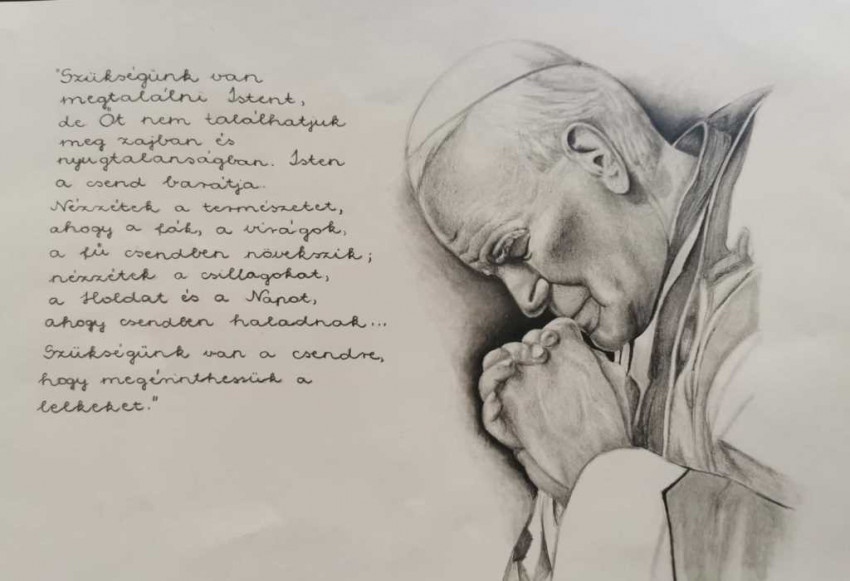 "Szükségünk van
megtalálni Istent,
de Őt nem találhatjuk
meg zajban és
nyugtalanságban. Isten
a csend barátja.
Nézzétek a természetet,
ahogy a fák, a virágok,
a fű csendben növekszik;
nézzétek a csillagokat,
a Holdat és a Napot,
ahogy csendben haladnak...
Szükségünk van a csendre,
hogy megérinthessük a
lelkeket."